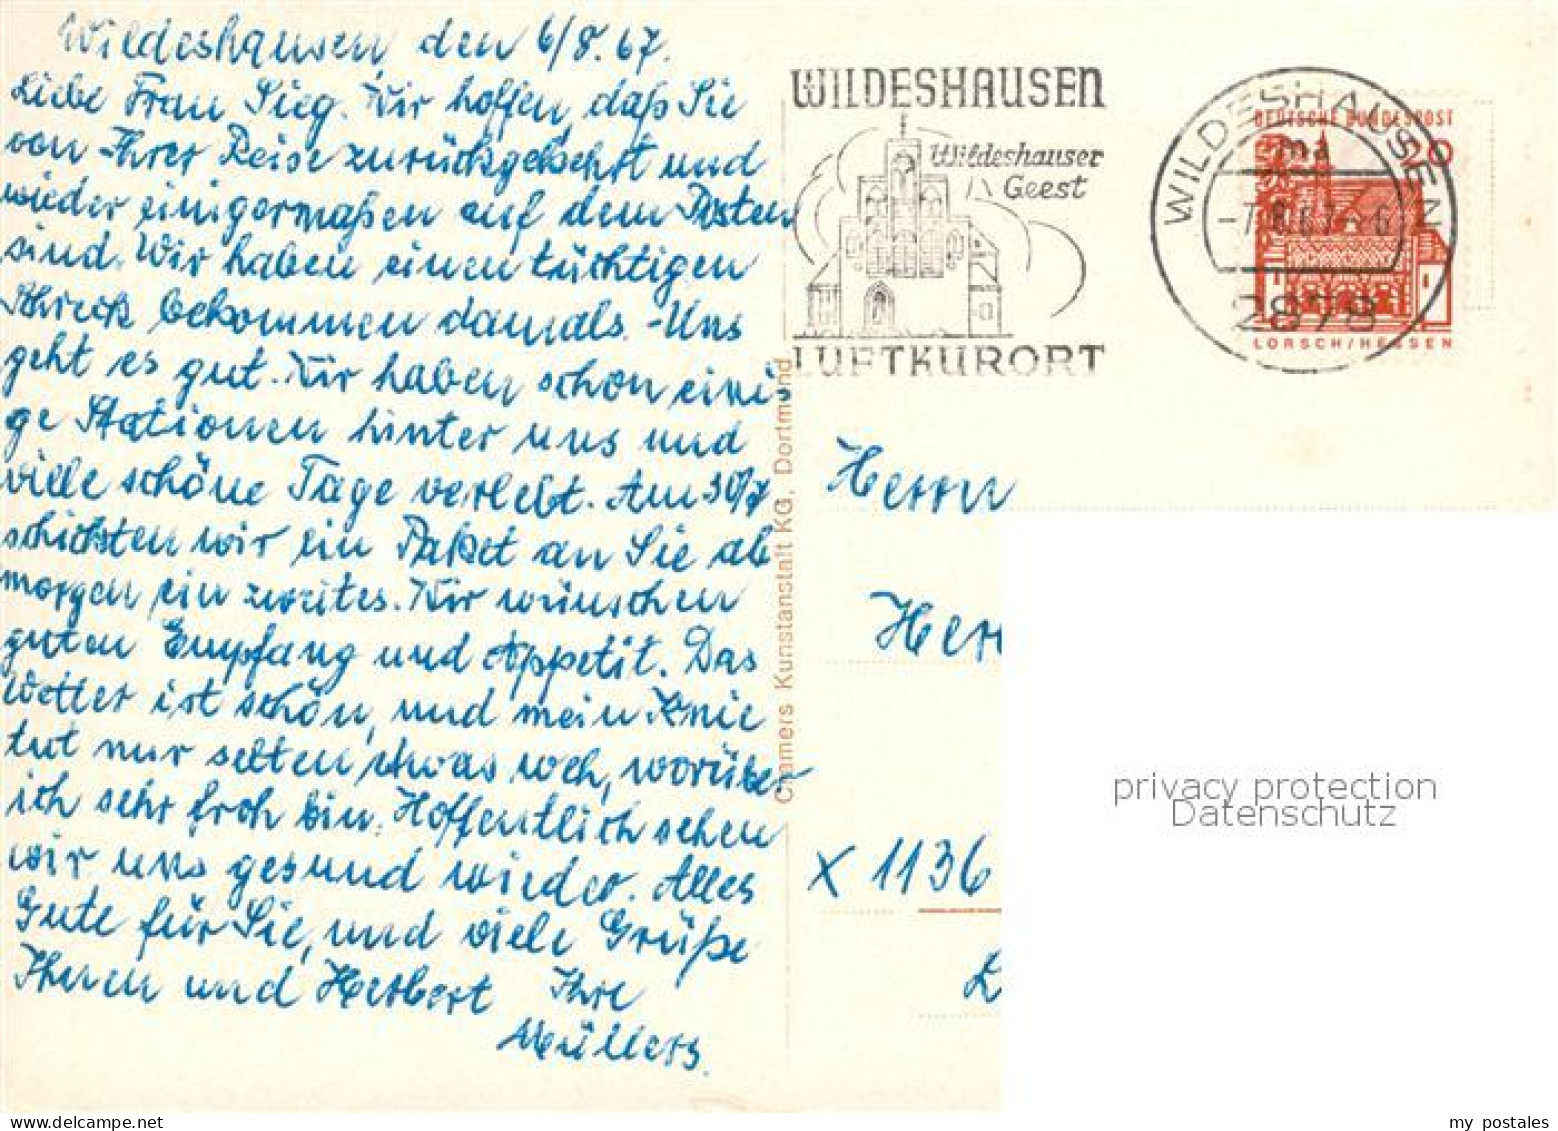 Wildeshausen, den 6/8. 67.
Liebe Frau Sieg. Wir hoffen, daß Sie
von Ihrer Reise zurückgekehrt und
wieder einigermaßen auf dem Posten
sind. Wir haben einen tüchtigen
Schreck bekommen damals. - Uns
geht es gut. Wir haben schon eini-
ge Stationen hinter uns und
viele schöne Tage verlebt. Am 30/7
schickten wir ein Paket an Sie ab
morgen ein zweites. Wir wünschen
guten Empfang und Appetit. Das
Wetter ist schön, und mein Knie
tut nur selten etwas weh, worüber
ich sehr froh bin. Hoffentlich sehen
wir uns gesund wieder. Alles
Gute für Sie, und viele Grüße
Ihnen und Herbert Ihre
Müllers.
Cramers Kunstanstalt KG, Dortmund
WILDESHAUSEN
Wildeshauser
Geest
LUFTKURORT
WILDESHAUSEN
ma
-7.8.67-6
2878
DEUTSCHE BUNDESPOST
20
LORSCH/HESSEN
Herrn
Herr
x 1136
L
privacy protection
Datenschutz
delcampe.net
my_postales